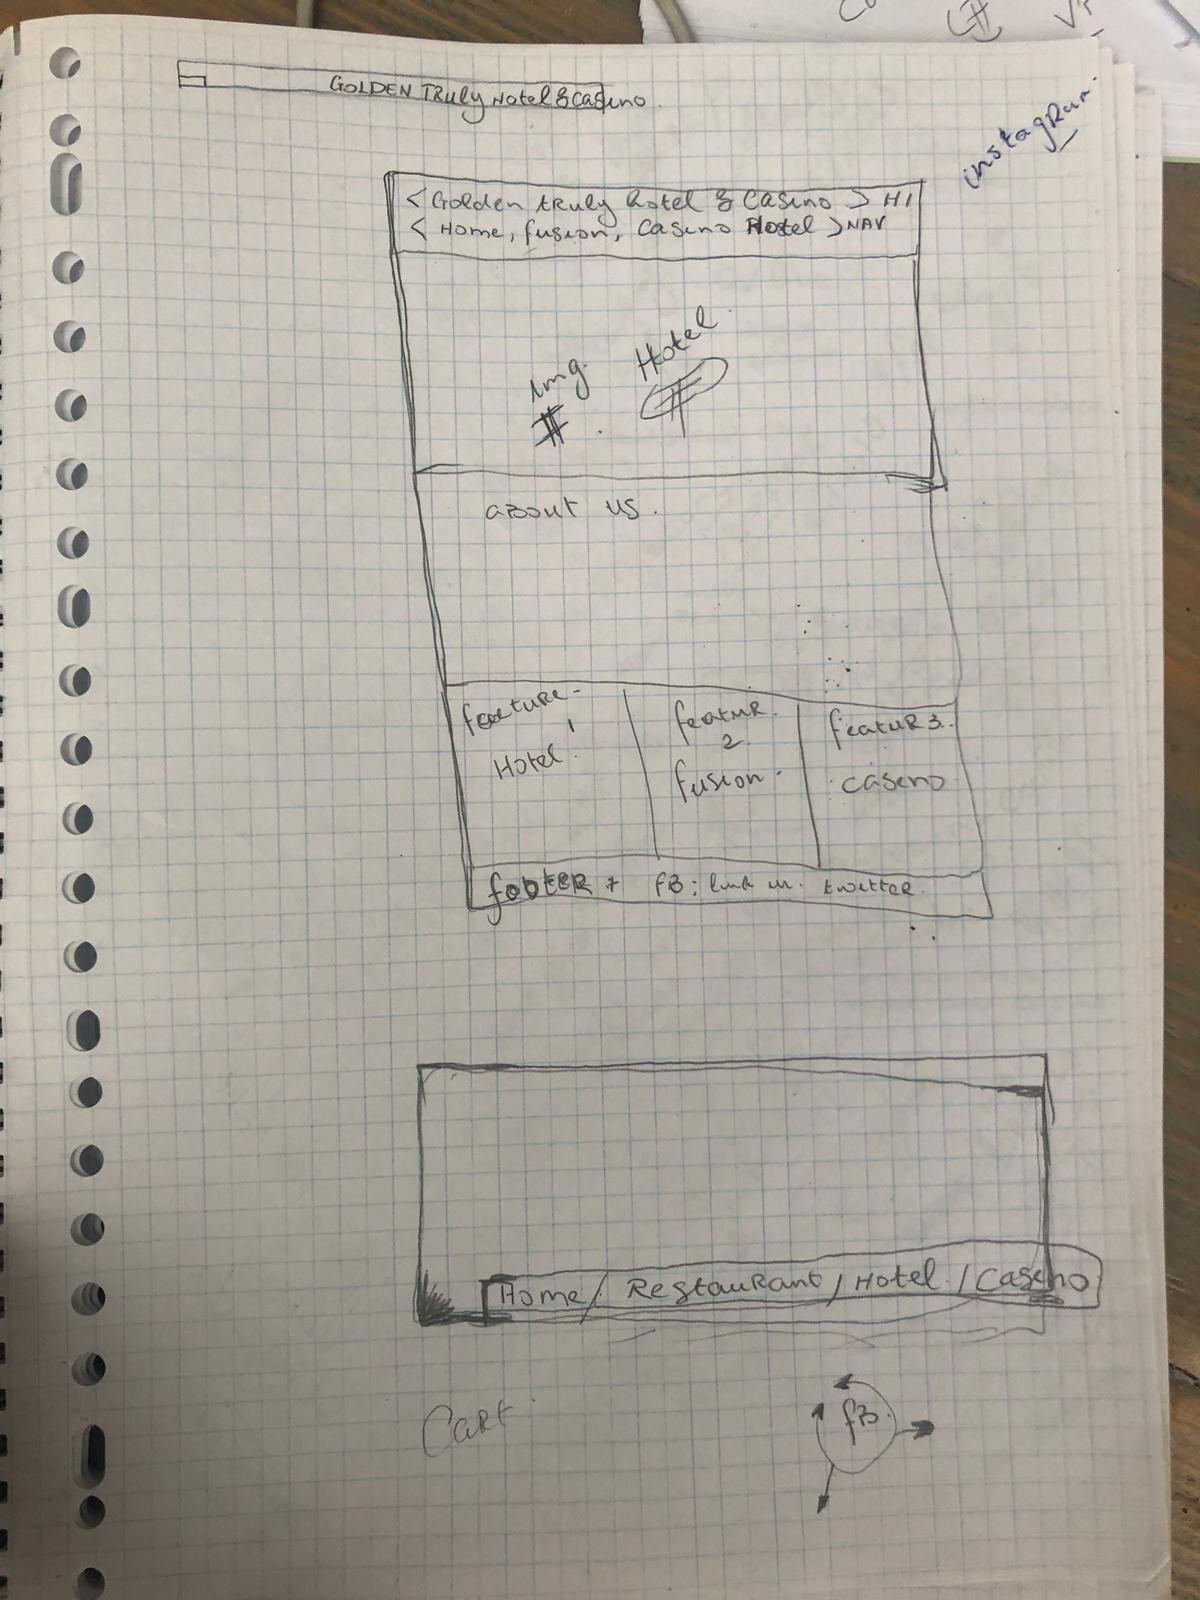 GOLDEN TRuly Hotel & Casino.
instagRam.
< Golden truly hotel & Casino > H1
< Home, fusion, Casino Hotel > NAV
Img. Hotel
about us.
feature-
1
Hotel.
featur.
2
fusion.
featur 3.
casino
footer + fB: link in. twitter.
Home / Restaurant / Hotel / Casino
Cart
fB.